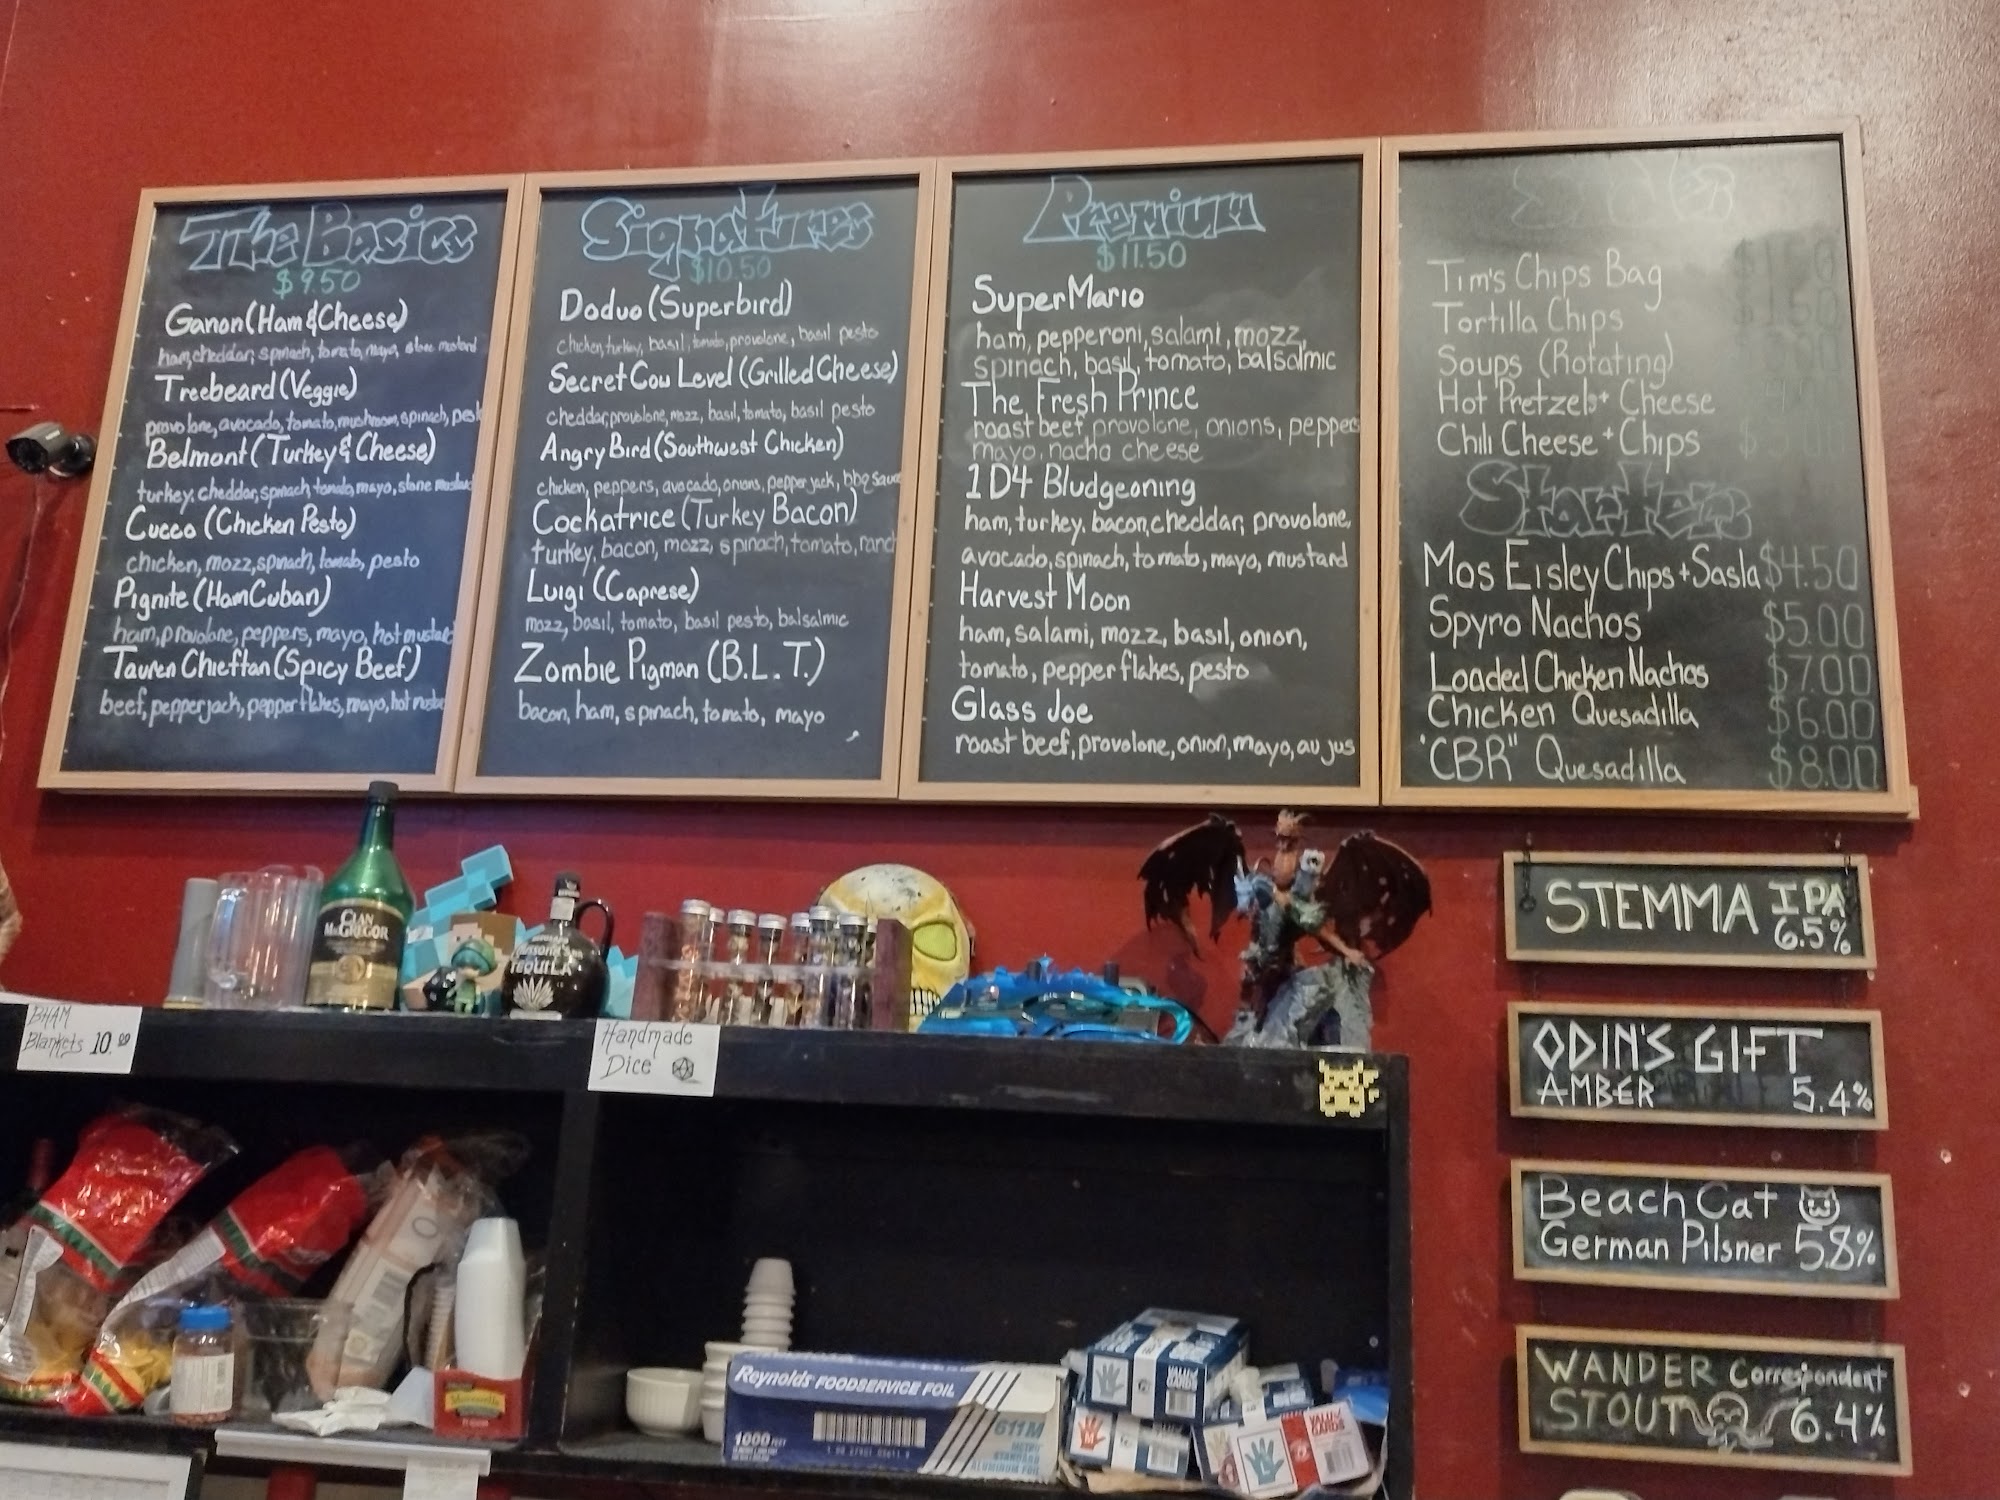 The Basics
$9.50
Ganon (Ham & Cheese)
ham, cheddar, spinach, tomato, mayo, stone mustard
Treebeard (Veggie)
provolone, avocado, tomato, mushroom, spinach, pest
Belmont (Turkey & Cheese)
turkey, cheddar, spinach tomato, mayo, stone mustard
Cucco (Chicken Pesto)
chicken, mozz, spinach, tomato, pesto
Pignite (Ham Cuban)
ham, provolone, peppers, mayo, hot mustard
Tauren Chieftan (Spicy Beef)
beef, pepperjack, pepper flakes, mayo, hot mustard
Signatures
$10.50
Doduo (Superbird)
chicken, turkey, basil, tomato, provolone, basil pesto
Secret Cow Level (Grilled Cheese)
cheddar, provolone, mozz, basil, tomato, basil pesto
Angry Bird (Southwest Chicken)
chicken, peppers, avocado, onions, pepper jack, bbq sauce
Cockatrice (Turkey Bacon)
turkey, bacon, mozz, spinach, tomato, ranch
Luigi (Caprese)
mozz, basil, tomato, basil pesto, balsalmic
Zombie Pigman (B.L.T.)
bacon, ham, spinach, tomato, mayo
Premium
$11.50
Super Mario
ham, pepperoni, salami, mozz,
spinach, basil, tomato, balsalmic
The Fresh Prince
roast beef, provolone, onions, peppers
mayo, nacho cheese
1D4 Bludgeoning
ham, turkey, bacon, cheddar, provolone,
avocado, spinach, tomato, mayo, mustard
Harvest Moon
ham, salami, mozz, basil, onion,
tomato, pepper flakes, pesto
Glass Joe
roast beef, provolone, onion, mayo, au jus
Tim's Chips Bag
Tortilla Chips $1.50
Soups (Rotating)
Hot Pretzels + Cheese
Chili Cheese + Chips
Starters
Mos Eisley Chips + Sasla $4.50
Spyro Nachos $5.00
Loaded Chicken Nachos $7.00
Chicken Quesadilla $6.00
"CBR" Quesadilla $8.00
STEMMA IPA
6.5%
ODIN'S GIFT
AMBER 5.4%
Beach Cat
German Pilsner 5.8%
WANDER Correspondent
STOUT 6.4%
CLAN
MacGREGOR
TEQUILA
BHAM
Blankets 10.00
Handmade
Dice
Reynolds FOODSERVICE FOIL
1000 FEET
611M
ALUMINUM FOIL
VALU
GARDS
M
L